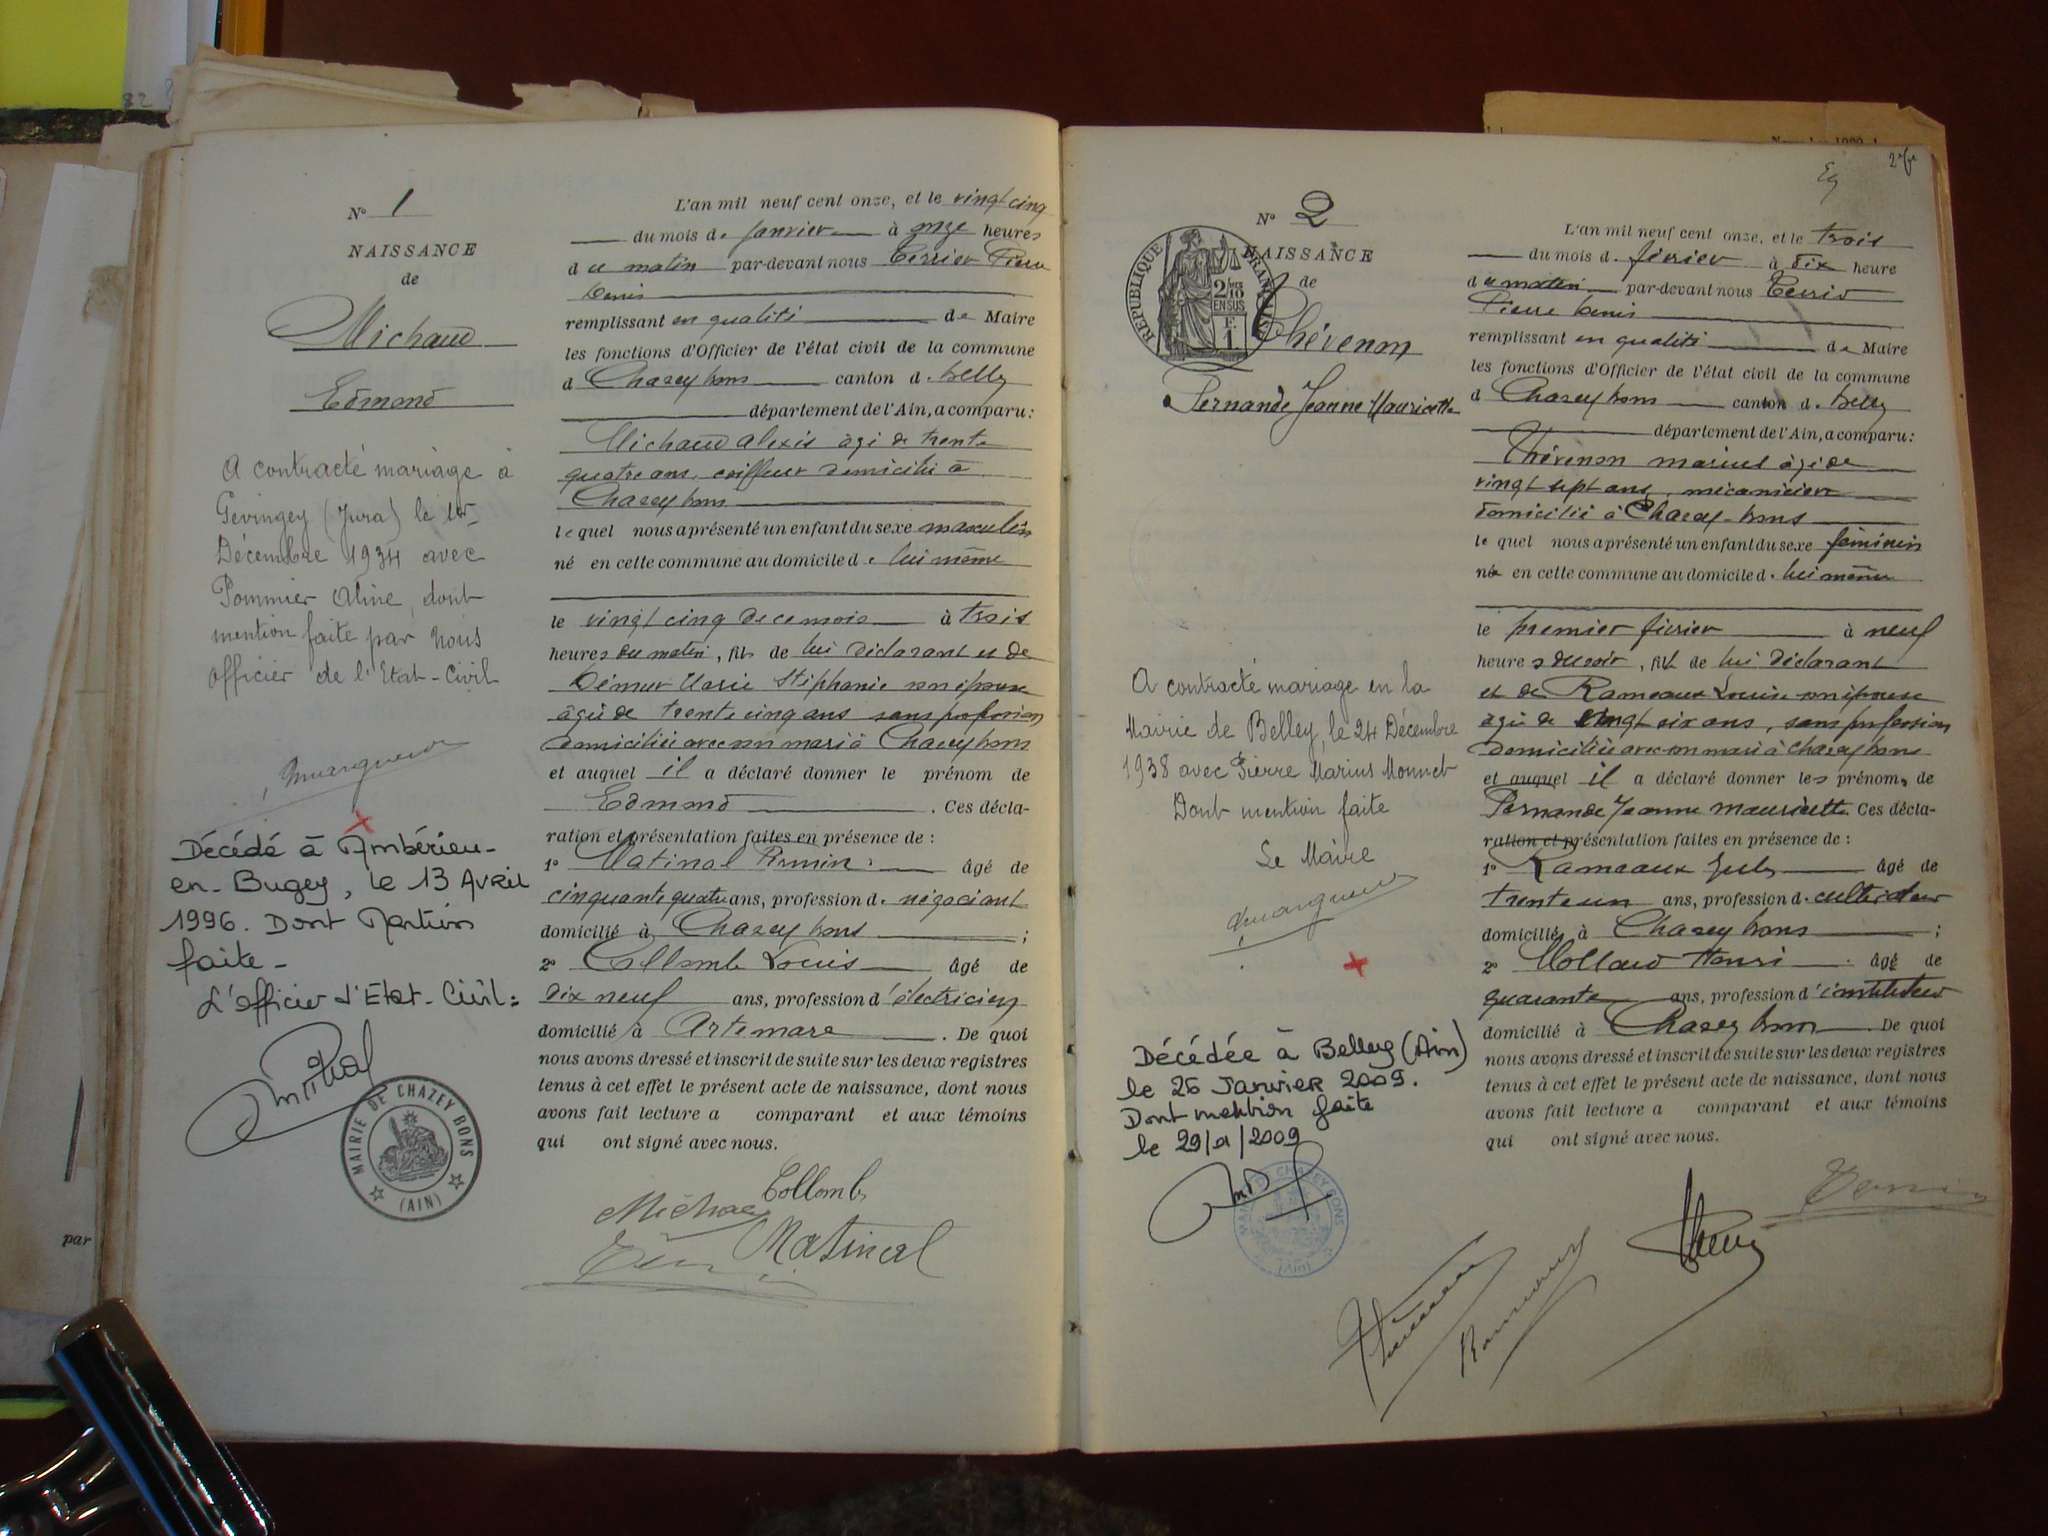 82
N° 1
NAISSANCE
de
Michaud
Edmond
A contracté mariage à
Gevingey (Jura) le 1er
Décembre 1934 avec
Pommier Aline, dont
mention faite par nous
officier de l'Etat-Civil
Décédé à Ambérieu-
en-Bugey, le 13 Avril
1996. Dont Mention
faite -
L'officier d'Etat-Civil:
MAIRIE DE CHAZEY BONS
(AIN)
par
L'an mil neuf cent onze, et le vingt cinq
du mois de janvier à onze heures
du matin par-devant nous Terrier Pierre
Denis
remplissant en qualité de Maire
les fonctions d'Officier de l'état civil de la commune
d Chazey bons canton d. belley
département de l'Ain, a comparu:
Michaud alexis âgé de trente
quatre ans, coiffeur domicilié à
Chazey bons
lequel nous a présenté un enfant du sexe masculin
né en cette commune au domicile d. lui même
le vingt cinq de ce mois à trois
heures du matin, fils de lui déclarant et de
Marie Stéphanie son épouse
âgée de trente cinq ans sans profession
domiciliée avec son mari à Chazey bons
et auquel il a déclaré donner le prénom de
Edmond. Ces décla-
ration et présentation faites en présence de :
1° Matinal Firmin âgé de
cinquante quatre ans, profession d. négociant
domicilié à Chazey bons ;
2° Collomb Louis âgé de
dix neuf ans, profession d'électricien
domicilié à Artemare. De quoi
nous avons dressé et inscrit de suite sur les deux registres
tenus à cet effet le présent acte de naissance, dont nous
avons fait lecture a comparant et aux témoins
qui ont signé avec nous.
Collomb
Michaud
Matinal
2
N° 2
NAISSANCE
de
REPUBLIQUE FRANÇAISE
2/10
EN SUS
F.
1
Thévenon
Fernande Jeanne Mauricette
A contracté mariage en la
Mairie de Belley, le 24 Décembre
1938 avec Pierre Marius Monnet
Dont mention faite
Le Maire
Décédée à Belley (Ain)
le 26 Janvier 2009.
Dont mention faite
le 29/01/2009
MAIRIE DE CHAZEY BONS
(Ain)
L'an mil neuf cent onze, et le trois
du mois d. février à dix heure
du matin par-devant nous Terrier
Pierre Denis
remplissant en qualité de Maire
les fonctions d'Officier de l'état civil de la commune
d Chazey bons canton d. belley
département de l'Ain, a comparu:
Thévenon marius âgé de
vingt sept ans, mécanicien
domicilié à Chazey-bons
lequel nous a présenté un enfant du sexe féminin
née en cette commune au domicile d. lui même
le premier février à neuf
heures du soir, fille de lui déclarant
et de Rameaux Louise son épouse
âgée de vingt six ans, sans profession
domiciliée avec son mari à Chazey bons
et auquel il a déclaré donner les prénoms de
Fernande Jeanne mauricette. Ces décla-
ration et présentation faites en présence de :
1° Rameaux Jules âgé de
trente un ans, profession d. cultivateur
domicilié à Chazey bons ;
2° Mollard Henri âgé de
quarante ans, profession d'instituteur
domicilié à Chazey bons. De quoi
nous avons dressé et inscrit de suite sur les deux registres
tenus à cet effet le présent acte de naissance, dont nous
avons fait lecture a comparant et aux témoins
qui ont signé avec nous.
Thévenon
Rameaux